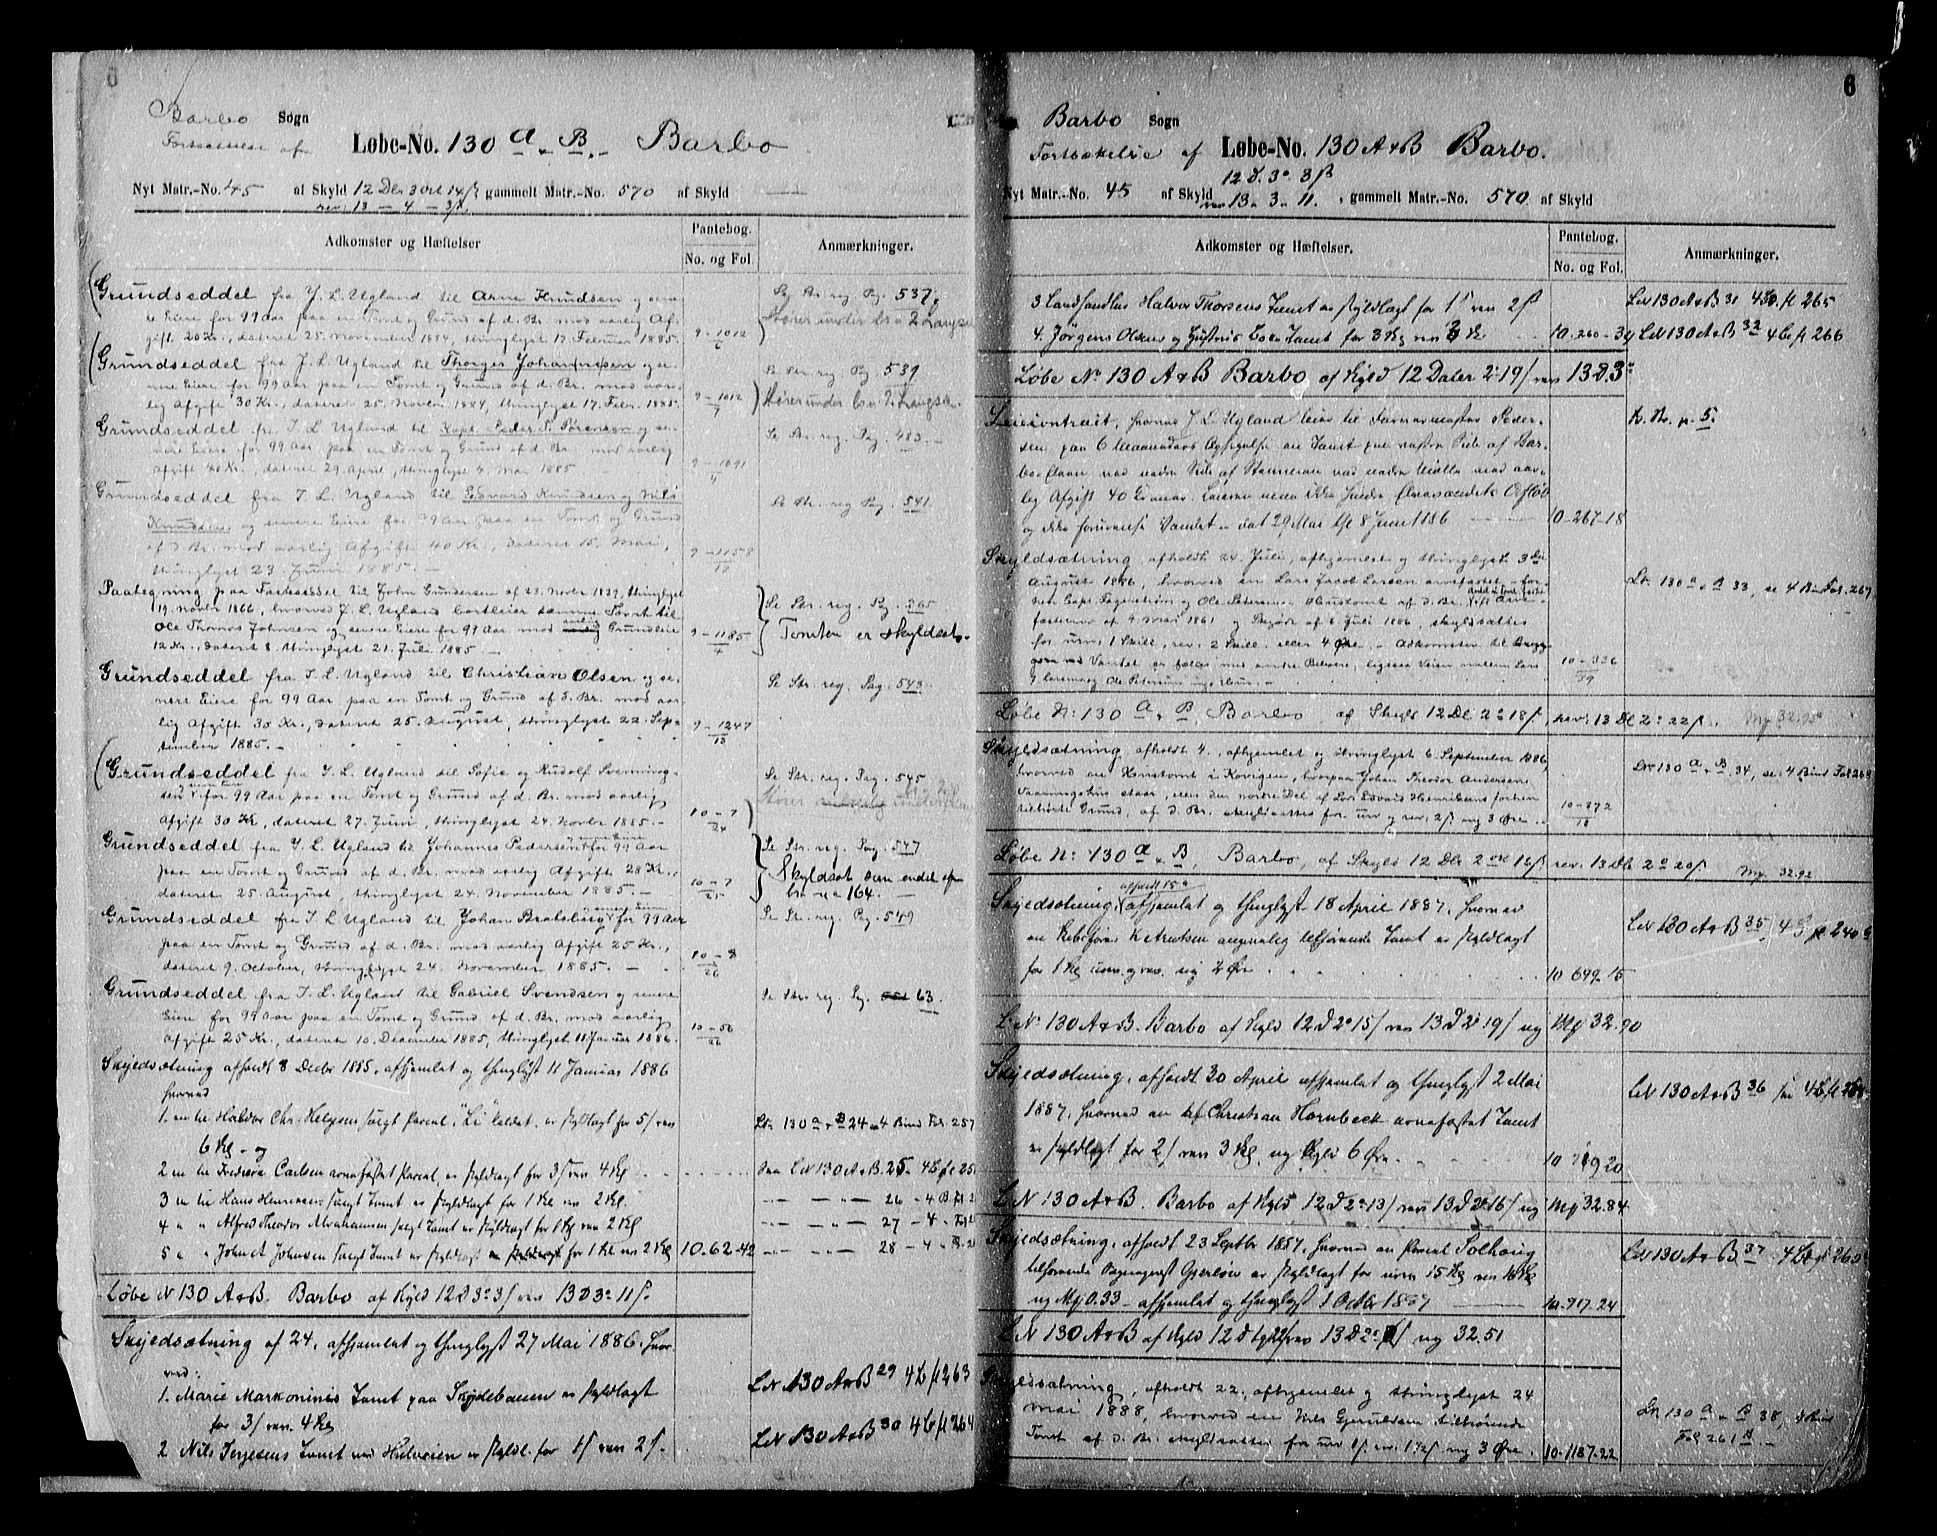 6
Barbo Sogn
Fortsættelse af Løbe-No. 130 a & B. Barbo
Nyt Matr.-No. 45 af Skyld 12 Dlr 3 Ort 14 ß, gammelt Matr.-No. 570 af Skyld
rev: 13 — 4 — 3 ß.
Adkomster og Hæftelser
Pantebog.
No. og Fol.
Anmærkninger.
Grundseddel fra J. L. Ugland til Arne Knudsen og sene-
re Eiere for 99 Aar paa en Tomt og Grund af d. Br. mod aarlig Af-
gift 20 Kr., dateret 25. November 1884, thinglyst 17. Februar 1885.
9 - 1012/6
Se Str. reg. Pag. 537.
Grundseddel fra J. L. Ugland til Thorger Johannesen og se-
nere Eiere for 99 Aar paa en Tomt og Grund af d. Br. mod aar-
lig Afgift 30 Kr., dateret 25. Novbr 1884, thinglyst 17. Febr. 1885.
9 - 1012/7
Se Str. reg. Pag. 539
Grundseddel fra J. L. Ugland til Kapt. Peder T. Sørensen og se-
nere Eiere for 99 Aar paa en Tomt og Grund af d. Br. mod aarlig
Afgift 40 Kr., dateret 29. April, thinglyst 4. Mai 1885
9 - 1091
Se Str. reg. Pag. 483.
Grundseddel fra J. L. Ugland til Edvard Knudsen og Nils
Knudsen og senere Eiere for 99 Aar paa en Tomt og Grund
af d. Br. mod aarlig Afgift 40 Kr., dateret 15. Mai,
thinglyst 23. Juni 1885.
9 - 1158/18
Str. reg. Pag. 541.
Paategning paa Fæsteseddel til John Gundersen af 23. Novbr 1839, thinglyst
19. Novbr 1866, hvorved J. L. Ugland bortleier samme Tomt til
Ole Thomas Johnsen og senere Eiere for 99 Aar mod aarlig Grundleie
12 Kr., dateret 8. thinglyst 21. Juli 1885.
9 - 1185/7
Se Str. reg. Pag. 365
Tomten er skyldsat.
Grundseddel fra J. L. Ugland til Christian Olsen og se-
nere Eiere for 99 Aar paa en Tomt og Grund af d. Br. mod aar-
lig Afgift 30 Kr., dateret 25. August, thinglyst 22. Sep-
tember 1885.
9 - 1247/13
Se Str. reg. Pag. 543.
Grundseddel fra J. L. Ugland til Sofie og Rudolf Svenning-
sen for 99 Aar paa en Tomt og Grund af d. Br. mod aarlig
Afgift 30 Kr., dateret 27. Juni, thinglyst 24. Novbr 1885.
10 - 7/24
Se Str. reg. Pag. 545
Grundseddel fra J. L. Ugland til Johannes Pedersen for 99 Aar
paa en Tomt og Grund af d. Br. mod aarlig Afgift 28 Kr.,
dateret 25. August, thinglyst 24. November 1885.
10 - 7/25
Se Str. reg. Pag. 547
Skyldsat
164.
Grundseddel fra J. L. Ugland til Johan Bratoling for 99 Aar
paa en Tomt og Grund af d. Br. mod aarlig Afgift 25 Kr.,
dateret 9. October, thinglyst 24. November 1885.
10 - 8/26
Se Str. reg. Pag. 549
Grundseddel fra J. L. Ugland til Gabriel Svendsen og senere
Eiere for 99 Aar paa en Tomt og Grund af d. Br. mod aarlig
Afgift 25 Kr., dateret 10. December 1885, thinglyst 11. Januar 1886.
10 - 50/26
Se Str. reg. Pg. 63.
Skyldsætning afholdt 8 Decbr 1885, afhjemlet og thinglyst 11 Januar 1886
hvorved
1. en til Haldor Chr. Helgesen solgt Parcel, "Li" kaldet, er skyldlagt for 5/ rev
6 ß - og
Lbr 130 a & B 24 4 Bind Fol. 257
2 en til Fredrik Carlsen arvefæstet Parcel, er skyldlagt for 3/ rev 4 ß
LN 130 A & B. 25
3 en til Hans Henriksen solgt Tomt er skyldlagt for 1 ß rev 2 ß.
26 - 4 B
4 " " Alfred Theodor Abrahamsen solgt Tomt er skyldlagt for 1 ß rev 2 ß
27 - 4
5 " " John Johnsen solgt Tomt er skyldlagt for 1 ß rev 2 ß
10. 62. 42
28 - 4
Løbe N 130 A & B. Barbo af Skyld 12 D 3 o 3/ rev 13 D 3 o 11 ß
Skyldsætning af 24. afhjemlet og thinglyst 27 Mai 1886. hvor-
ved:
1. Marie Markonines Tomt paa Skydebanen er skyldlagt
for 3/ rev. 4 ß
LN 130 A & B 29 4 b fl 263
2 Nils Terjesens Tomt ved Hulveien er skyldl. for 1/ rev 2/.
LN 130 A & B 30 4 b fl 264
6
Barbo Sogn
Fortsættelse af Løbe-No. 130 A & B Barbo.
12 D. 3 o 3 ß
Nyt Matr.-No. 45 af Skyld rev 13 " 3 " 11. , gammelt Matr.-No. 570 af Skyld
Adkomster og Hæftelser.
Pantebog.
No. og Fol.
Anmærkninger.
3 Landhandler Halvor Thorsens Tomt er skyldlagt for 1 ß rev 2 ß
LN 130 A & B 31 4 b. fl 265
4. Jørgen Olsens og Tomt for 3 ß rev
10 - 260 - 39
LN 130 A & B 32 4 b fl 266
Løbe No 130 A & B Barbo af Skyld 12 Daler 2 o 19/ rev 13 D 3 o
Leiecontract, hvorved J L Ugland leier til Farvermester Peder-
sen paa 6 Maaneders Opsigelse en Tomt paa vestre Side af Bar-
boelven ved nedre Side af ved nedre Mølle mod aar-
lig Afgift 40 Kroner.
og ikke forurense Vandet - dat 29 Mai lyst 8 Juni 1886
10 - 267 - 18
p. 5.
Skyldsætning afholdt 24. Juli, afhjemlet og thinglyst 3 die
August 1886, hvorved en Lars Jacob Larsen arvefæstet for-
hen Capt. Fagerstrøm og Ole Petersens Hustomt af d. Br.
fæstebrev af 9. Mai 1861 og Skjøde af 6. Juli 1886, skyldsattes
for urev. 1 Skill., rev. 2 Skill. eller 4 Øre. - Adkomsten til Bryg-
gen ved Vandet er fælles med andre Beboere, ligesaa Veien mellem Lars
J. Larsen og Ole Petersens Huse.
10 - 336/39
Lbr 130 a & B 33, se 4 Bind Fol. 267
Løbe No: 130 a & B, Barbo af Skyld 12 Dl 2 o 18 ß, rev. 13 Dl 2 o 22 ß. My 32.95
Skyldsætning, afholdt 4., afhjemlet og thinglyst 6. September 1886,
hvorved en Hustomt i Kovigen, hvorpaa Johan Theodor Andersens
Vaaningshus staar, eller den nordre Del af Lars Edvard Henriksens forhen
tilhørte Grund, af d. Br. skyldsattes for urev og rev. 2 ß ny 3 Øre.
10 - 372/18
Lbr 130 a & B. 34, se 4 Bind Fol 268
Løbe No: 130 a & B, Barbo, af Skyld 12 Dlr 2 ort 16 ß rev. 13 Dlr 2 o 20 ß. My. 32.92
Skyldsætning, afholdt 15 afhjemlet og thinglyst 18 April 1887, hvorved
en Rebslager K Knutsen tilhørende Tomt er skyldlagt
for 1 ß urev. og rev. ny 2 Øre
10 699 - 15
LN 130 A & B 35
L. N. 130 A & B. Barbo af Skyld 12 D 2 o 15/ rev 13 D 2 o 19/ ny My 32.90
Skyldsætning, afholdt 30 April afhjemlet og thinglyst 2 Mai
1887, hvorved en af Christian Hornbeck arvefæstet Tomt
er skyldlagt for 2/ rev 3 ß, ny Skyld 6 Øre
10 719 20
LN 130 A & B 36
LN 130 A & B. Barbo af Skyld 12 D 2 o 13/ rev 13 D 2 o 16/ ny My 32.84
Skyldsætning, afholdt 23 Septbr 1887, hvorved en Parcel Solhaug
tilhørende Gjerløw er skyldlagt for urev 15 ß rev 16 ß
ny My 0.33 - afhjemlet og thinglyst 1 Octbr 1887
10 - 917 - 24
LN 130 A & B 37
LN 130 A & B af Skyld 12 D rev 13 D 2 o ny 32.51
Skyldsætning, afholdt 22., afhjemlet og thinglyst 24
Mai 1888, hvorved en Nils Gjeruldsen tilhørende
Tomt af d. Br. skyldsattes for urev 1 ß rev. 1 1/2 ß ny 3 Øre.
10 - 1187 - 22
Lbr 130 a & B 38, 4 Bind
Fol 261